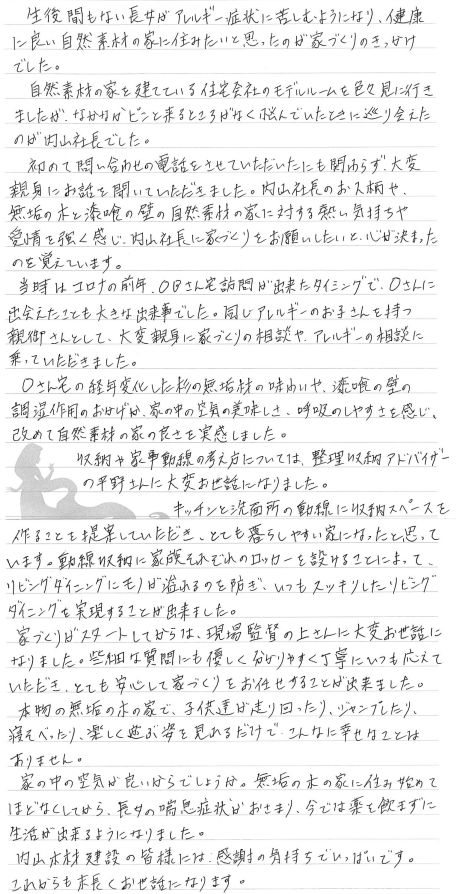 生後間もない長女がアレルギー症状に苦しむようになり、健康
に良い自然素材の家に住みたいと思ったのが家づくりのきっかけ
でした。
自然素材の家を建てている住宅会社のモデルルームを色々見に行き
ましたが、なかなかピンと来るところがなく悩んでいたときに巡り会えた
のが内山社長でした。
初めて問い合わせの電話をさせていただいたにも関わらず、大変
親身にお話を聞いていただきました。内山社長のお人柄や、
無垢の木と漆喰の壁の自然素材の家に対する熱い気持ちや
愛情を強く感じ、内山社長に家づくりをお願いしたいと、心が決まった
のを覚えています。
当時はコロナの前年、OBさん宅訪問が出来たタイミングで、Oさんに
出会えたことも大きな出来事でした。同じアレルギーのお子さんを持つ
親御さんとして、大変親身に家づくりの相談や、アレルギーの相談に
乗っていただきました。
Oさん宅の経年変化した杉の無垢材の味わいや、漆喰の壁の
調湿作用のおかげか、家の中の空気の美味しさ、呼吸のしやすさを感じ、
改めて自然素材の家の良さを実感しました。
収納や家事動線の考え方については、整理収納アドバイザー
の平野さんに大変お世話になりました。
キッチンと洗面所の動線に収納スペースを
作ることを提案していただき、とても暮らしやすい家になったと思って
います。動線収納に家族それぞれのロッカーを設けることによって、
リビングダイニングにモノが溢れるのを防ぎ、いつもスッキリしたリビング
ダイニングを実現することが出来ました。
家づくりがスタートしてからは、現場監督の上さんに大変お世話に
なりました。些細な質問にも優しく分かりやすく丁寧にいつも応えて
いただき、とても安心して家づくりをお任せすることが出来ました。
本物の無垢の木の家で、子供達が走り回ったり、ジャンプしたり、
寝そべったり、楽しく遊ぶ姿を見れるだけで、こんなに幸せなことは
ありません。
家の中の空気が良いからでしょうか。無垢の木の家に住み始めて
ほどなくしてから、長女の喘息症状がおさまり、今では薬を飲まずに
生活が出来るようになりました。
内山木材建設の皆様には、感謝の気持ちでいっぱいです。
これからも末長くお世話になります。